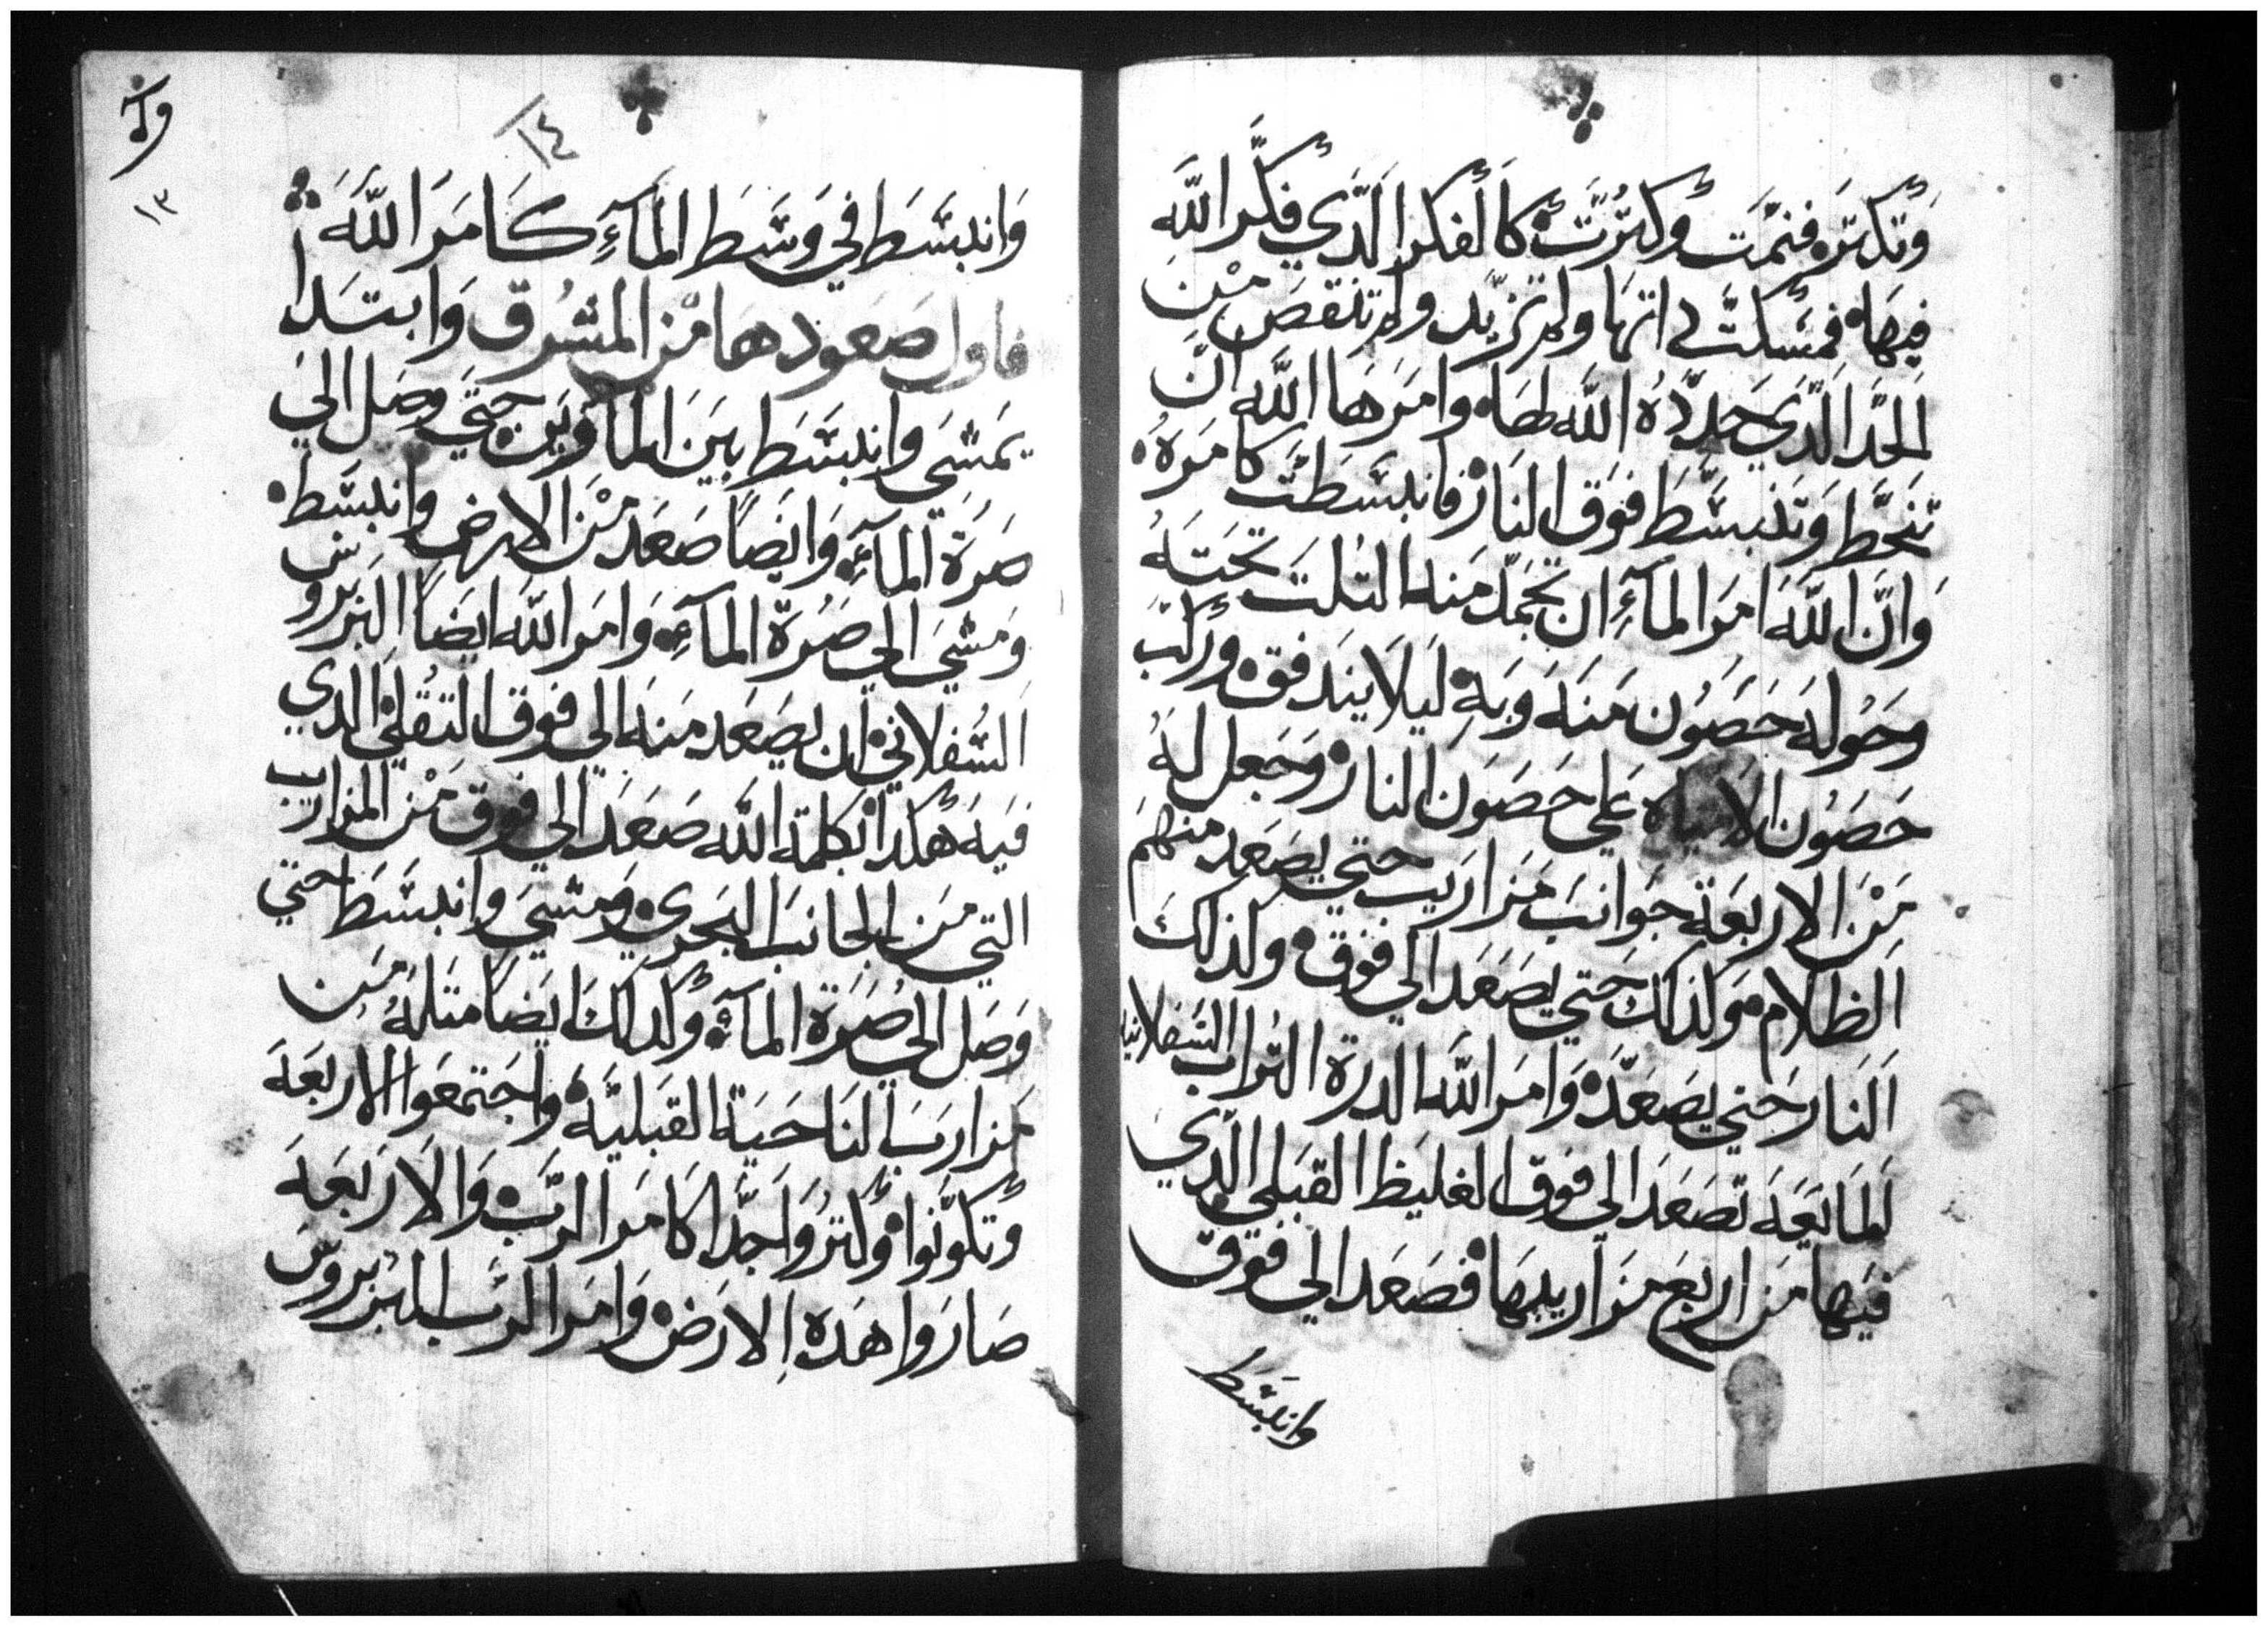 وتكتره فنمت وكترت كالفكر الذي فكر الله
فيها فمسكت داتها ولم تزيد ولم تنقص من
الحد الذي حدده الله لها وامرها الله ان
تنحط وتنبسط فوق النار فانبسطت كامره
وان الله امر الماء ان تجمل منه التلت تحته
وحوله حصون منه وبه ليلا يندفق وركب
حصون الامياه علي حصون النار وجعل له
من الاربعة جوانب مزاريب حتي يصعد منهم
الظلام وكذلك حتي يصعد الي فوق ولذلك
النار حتي يصعد وامر الله الدرة التراب السفلانيه
المايعه تصعد الي فوق الغليظ القبلي الذي
فيها من اربع مزاريبها فصعد الي فوق
وانبسط
١٤
١٣
وانبسط في وسط الماء كامر الله
فاول صعودها من المشرق وابتدا
يمشي وانبسط بين الماوين حتي وصل الي
صرة الماء وايضا صعد من الارض وانبسط
ومشي الي صرة الماء وامر الله ايضا البربروس
السفلاني ان يصعد منه الي فوق التقلي الدي
فيه هكدا بكلمة الله صعد الي فوق من المزاريب
التي من الجانب البحري ومشي وانبسط حتي
وصل الي صرة الماء وكدلك ايضا متله من
مزاريب الناحية القبليه واجتمعوا الاربعه
وتكونوا وكتروا جدا كامر الرب والاربعه
صاروا هده الارض وامر الرب البربروس